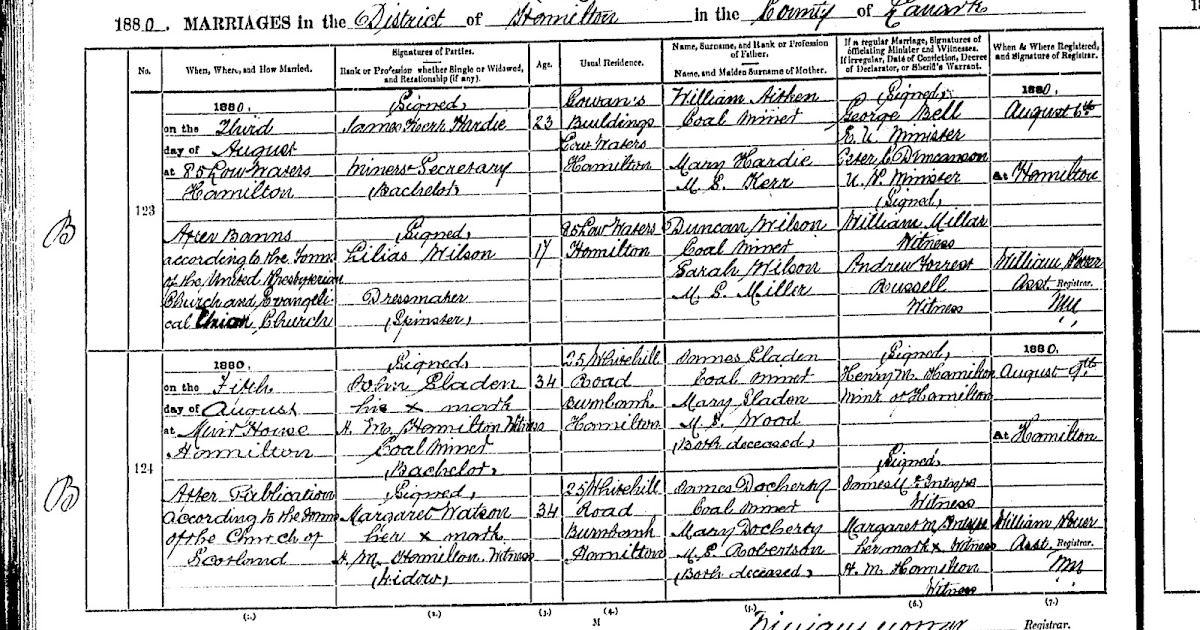 1880. MARRIAGES in the District of Hamilton in the County of Lanark
No.
When, Where, and How Married.
Signatures of Parties.
Rank or Profession whether Single or Widowed, and Relationship (if any).
Age.
Usual Residence.
Name, Surname, and Rank or Profession of Father.
Name, and Maiden Surname of Mother.
If a regular Marriage, Signatures of officiating Minister and Witnesses.
If irregular, Date of Conviction, Decree of Declarator, or Sheriff's Warrant.
When & Where Registered, and Signature of Registrar.
B
123
1880,
on the Third
day of August
at 85 Low Waters
Hamilton
After Banns
according to the Forms
of the United Presbyterian
Church and Evangeli
cal Union Church
(Signed)
James Keir Hardie
Miners Secretary
(Bachelor)
(Signed)
Lilias Wilson
Dressmaker
(Spinster)
23
17
Cowan's
Buildings
Low Waters
Hamilton
85 Low Waters
Hamilton
William Aitken
Coal Miner
Mary Hardie
M.S. Kerr
Duncan Wilson
Coal Miner
Sarah Wilson
M.S. Miller
(Signed)
George Bell
E. U. Minister
Peter C. Duncanson
U. P. Minister
(Signed)
William Millar
Witness
Andrew Forrest
Russell
Witness
1880.
August 6th
at Hamilton
William
Asst. Registrar.
B
124
1880.
on the Fifth
day of August
at Muir House
Hamilton
After Publication
according to the Forms
of the Church of
Scotland
(Signed)
John Sladen
his x mark
H. M. Hamilton Witness
Coal Miner
(Bachelor)
(Signed)
Margaret Watson
her x mark
H. M. Hamilton. Witness
(Widow)
34
34
25 Whitehill
Road
Burnbank
Hamilton
25 Whitehill
Road
Burnbank
Hamilton
James Sladen
Coal Miner
Mary Sladen
M.S. Wood
(Both deceased)
James Docherty
Coal Miner
Mary Docherty
M.S. Robertson
(Both deceased)
(Signed)
Henry M. Hamilton
Minr of Hamilton
(Signed)
James McIntyre
Witness
Margaret McIntyre
her mark x Witness
H. M. Hamilton
Witness
1880.
August 9th
at Hamilton
William
Asst. Registrar.
(1.) (2.) (3.) (4.) (5.) (6.) (7.)
M
Registrar.